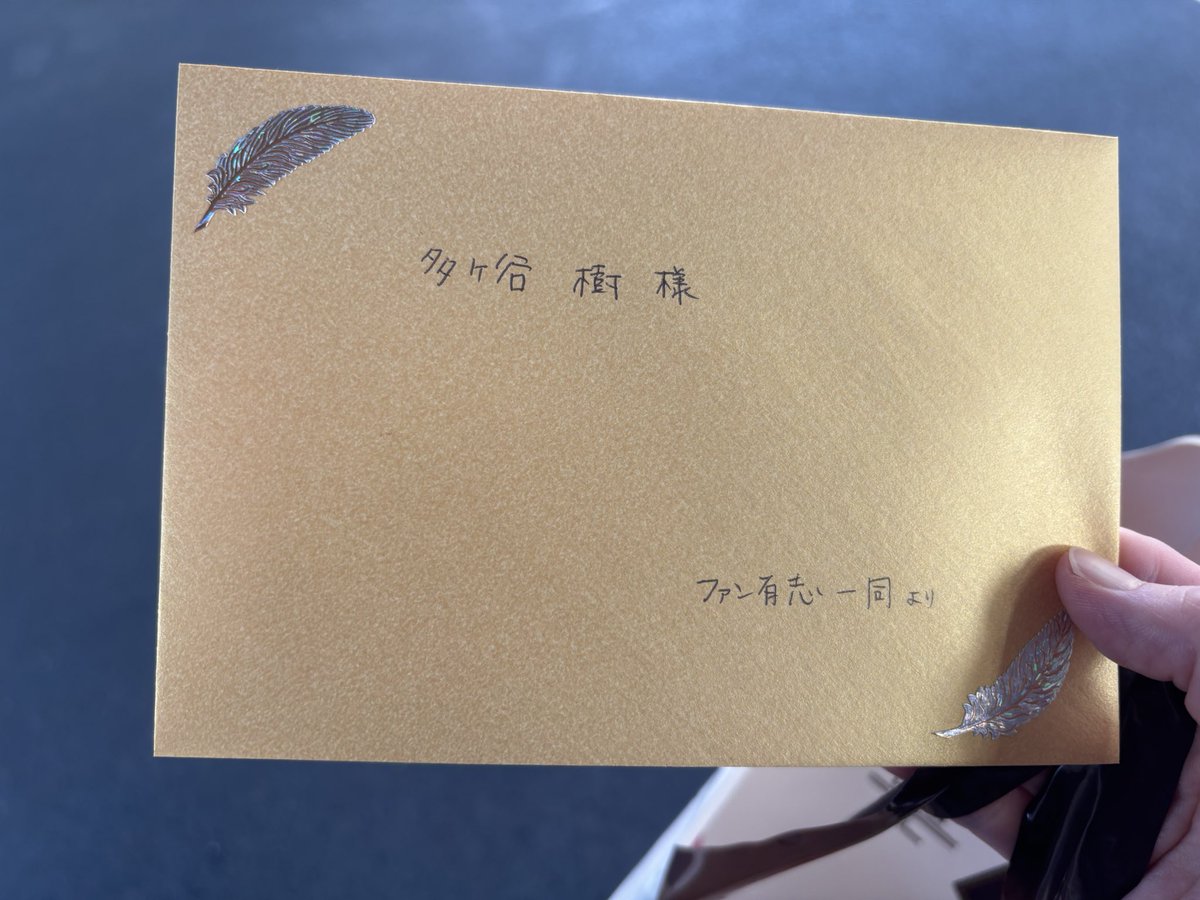 多ヶ谷 樹 様
ファン有志一同より